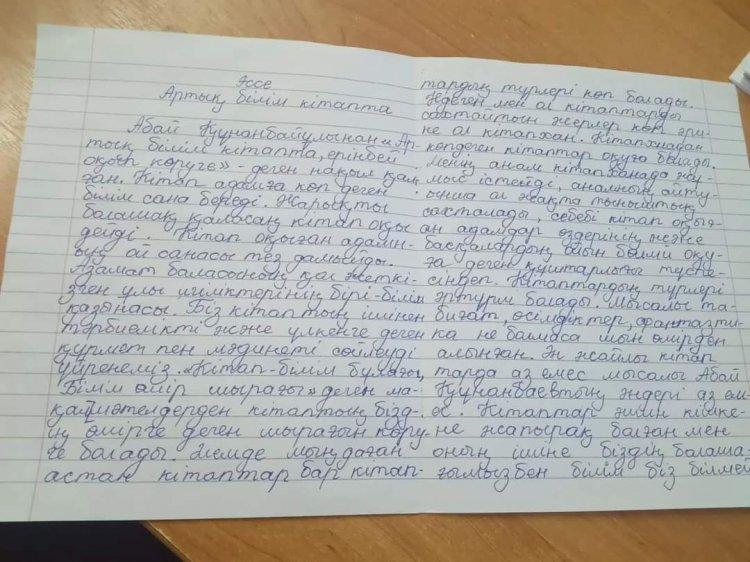 Эссе
Артық білім кітапта
Абай Құнанбайұлынан «Ар-
тық білім кітапта, ерінбей
оқып көруге» - деген нақыл қал
ған. Кітап адамға көп деген
білім сана береді. Жарықты
балашақ қаласаң кітап оқы
дейді. Кітап оқыған адамн-
ың ой санасы тез дамыйды.
Азамат баласының қол жеткі-
зген ұлы игіліктерінің бірі-білім
қазынасы. Біз кітаптың ішінен
тәрбиемікті және үлкенге деген
құрмет пен мәдинеті сөйлеуді
үйренеміз. «Кітап-білім бұлағы,
Білім өмір шырағы» деген ма-
қал мәтелдерден кітаптың бізд-
ің өмірге деген шырағын көру-
ге балады. Әлемде мыңдаған
астан кітаптар бар кітап-
тардың түрлері көп балады.
Әдеген мен ол кітаптарды
сақтайтын жерлер көп әри-
не ол кітапхан. Кітапхнадан
көпдеген кітаптар оқуға балады.
Менің анам кітапханада жұ-
мыс істейді, анамның айту-
ынша ол жақта тыныштық
сақталады, себебі кітап оқығ-
ан адамдар өздерінің және
басқалардың ойын бөлми оқу-
ға деген құштарлығы түспе-
сіндеп. Кітаптардың түрлері
әртүрм балады. Мысалы та-
биғат, өсімдіктер, фантазти-
ка не балмаса шын өмірден
алынған. Ән жайлы кітап
тарда аз емес мысалы Абай
Құнанбаевтың әндері аз ем-
ес. Кітаптар үшін кішке-
не жапырақ балған мен
оның ішіне біздің балаша-
ғымызбен білім біз білмей